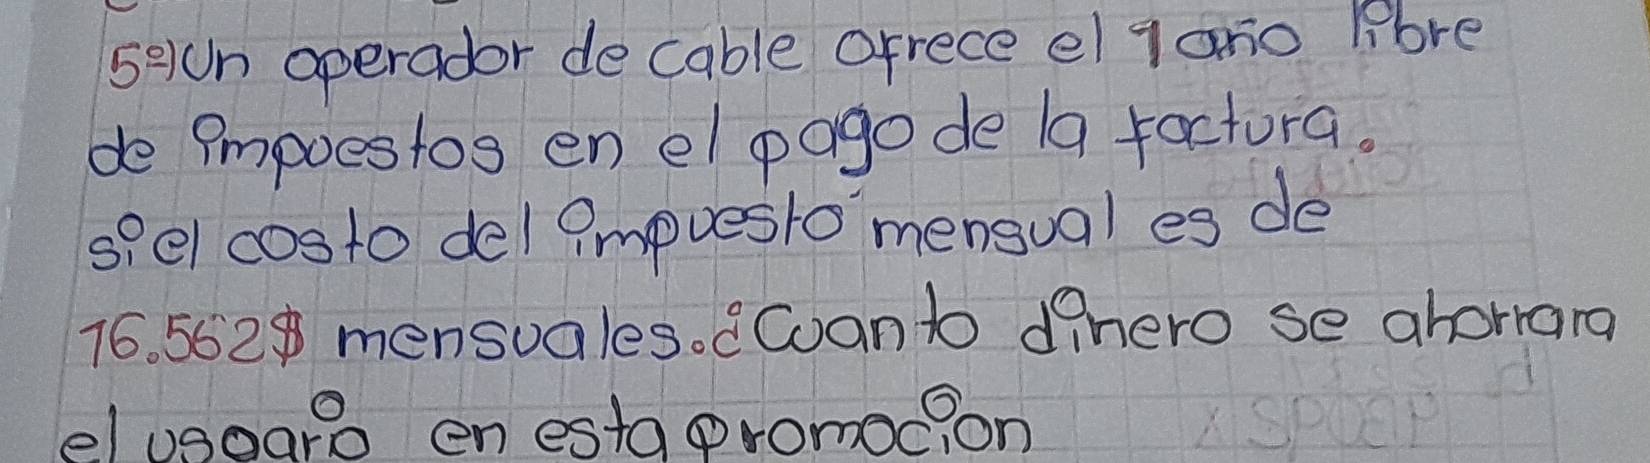 5º) Un operador de cable ofrece el 1 año libre
de impuestos en el pago de la factura.
si el costo del impuesto mensual es de
16.562$ mensuales. ¿Cuanto dinero se ahorrara
el usoario en esta promocion